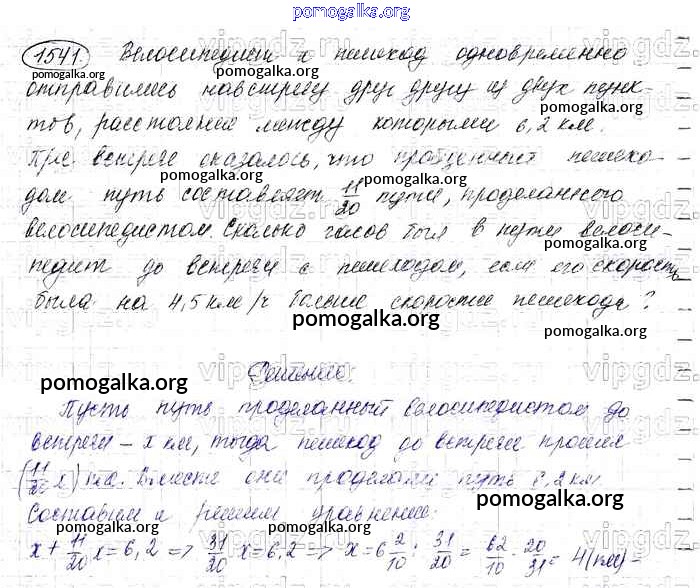 pomogalka.org
1541. Велосипедист и пешеход одновременно
pomogalka.org
pomogalka.org
отправились навстречу друг другу из двух пунк-
pomogalka.org
тов, расстояние между которыми 6,2 км.
При встрече оказалось, что пройденный пешехо-
pomogalka.org
pomogalka.org
дом путь составляет 11/20 пути, проделанного
велосипедистом. Сколько часов был в пути велоси-
pomogalka.org
педист до встречи с пешеходом, если его скорость
была на 4,5 км/ч больше скорости пешехода?
pomogalka.org
pomogalka.org
Решение.
pomogalka.org
Пусть путь проделанный велосипедистом до
встречи – x км, тогда пешеход до встречи прошел
(11/20 x) км. Вместе они проделали путь 6,2 км.
pomogalka.org
Составим и решим уравнение:
x + 11/20 x = 6,2 => 31/20 x = 6,2 => x = 6 2/10 : 31/20 = 62/10 · 20/31 = 4 (км) –